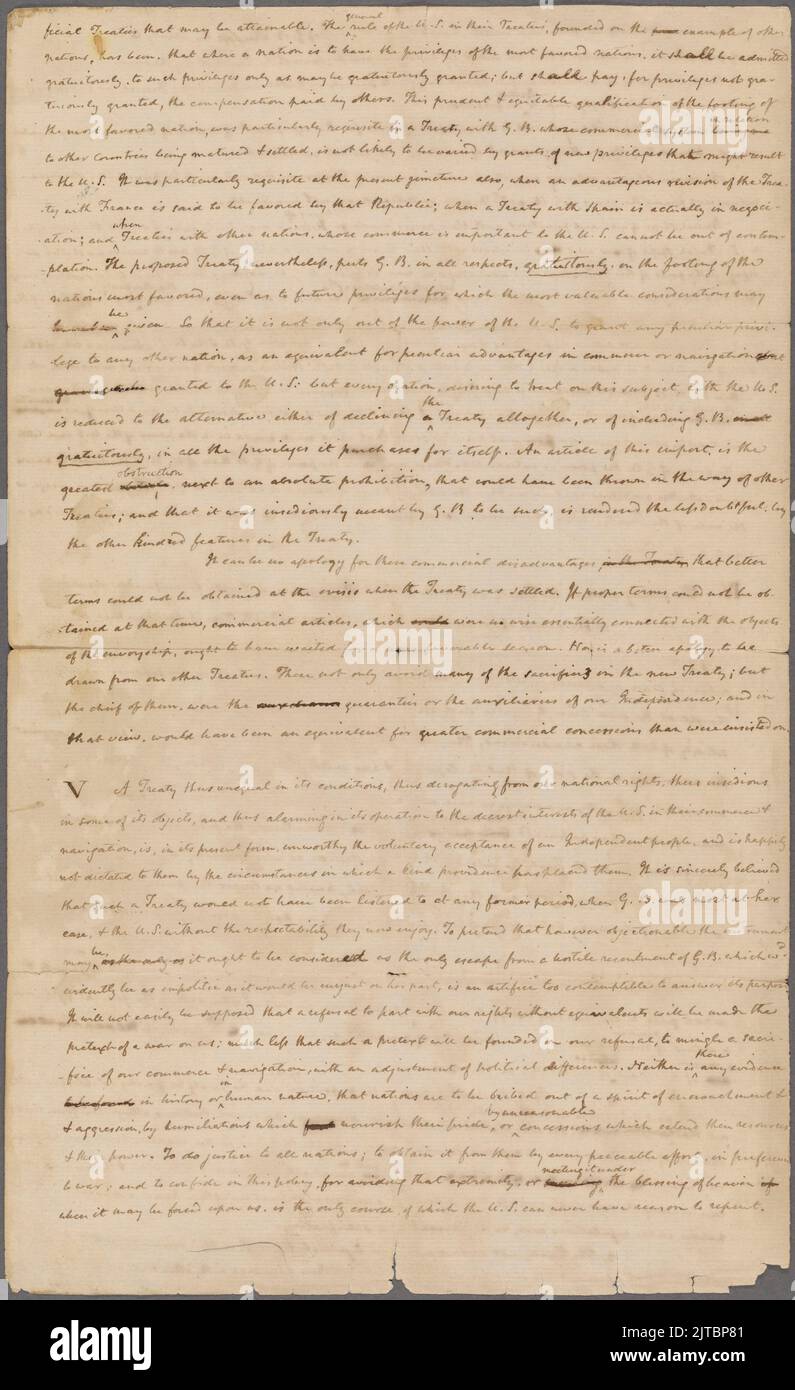 ficial Treaties that may be attainable. The general rule of the U.S. in their Treaties, founded on the example of other
nations, has been, that where a nation is to have the privileges of the most favored nations, it shall be admitted
gratuitously to such privileges only as may be gratuitously granted; but shall pay, for privileges not gra-
tuitously granted, the compensation paid by others. This prudent & equitable qualification of the footing of
the most favored nation, was particularly requisite in a Treaty with G.B. whose commercial system in relation
to other Countries being matured & settled, is not likely to be varied by grants of new privileges that might result
to the U.S. It was particularly requisite at the present juncture also, when an advantageous revision of the Trea-
ty with France is said to be favored by that Republic; when a Treaty with Spain is actually in negoci-
-ation; and when Treaties with other nations, whose commerce is important to the U.S. cannot be out of contem-
-plation. The proposed Treaty nevertheless, puts G.B. in all respects, gratuitously, on the footing of the
nations most favored, even as to future privileges for which the most valuable considerations may
be given. So that it is not only out of the power of the U.S. to grant any peculiar privi-
lege to any other nation, as an equivalent for peculiar advantages in commerce or navigation
granted to the U.S: but every nation, desiring to treat on this subject, with the U.S.
is reduced to the alternative either of declining the Treaty altogether, or of including G.B.
gratuitously, in all the privileges it purchases for itself. An article of this import, is the
greatest obstruction next to an absolute prohibition, that could have been thrown in the way of other
Treaties; and that it was insidiously meant by G.B to be such, is rendered the less doubtful, by
the other kindred features in the Treaty.
It can be no apology for these commercial disadvantages, in the Treaty, that better
terms could not be obtained at the crisis when the Treaty was settled. If proper terms could not be ob-
tained at that time, commercial articles, which were no wise essentially connected with the objects
of the envoyship, ought to have waited for a more favorable season. Nor is a better apology to be
drawn from our other Treaties. These not only avoid many of the sacrifices in the new Treaty; but
the chief of them, were the guaranties or the auxiliaries of our Independence; and in
that view, would have been an equivalent for greater commercial concessions than were insisted on.
V A Treaty thus unequal in its conditions, thus derogating from our national rights, thus insidious
in some of its objects, and thus alarming in its operation to the dearest interests of the U.S. in their commerce &
navigation, is, in its present form, unworthy the voluntary acceptance of an Independent people, and is happily
not dictated to them by the circumstances in which a kind providence has placed them. It is sincerely believed
that such a Treaty would not have been listened to at any former period, when G. B. was most at her
ease, & the U.S. without the respectability they now enjoy. To pretend that however objectionable the instrument
may be, it ought to be considered as the only escape from a hostile resentment of G.B. which wd
evidently be as impolitic as it would be unjust on her part, is an artifice too contemptible to answer its purpose.
It will not easily be supposed that a refusal to part with our rights without equivalents will be made the
pretext of a war on us; much less that such a pretext will be founded on our refusal, to mingle a sacri-
-fice of our commerce & navigation, with an adjustment of political differences. Neither is there any evidence
in history or in human nature, that nations are to be bribed out of a spirit of encroachment &
& aggression, by humiliations which nourish their pride, or by unreasonable concessions which extend their resources
& their power. To do justice to all nations; to obtain it from them by every peaceable effort, in preference
to war; and to confide in this policy, for avoiding that extremity, or meeting it under the blessing of heaven
when it may be forced upon us, is the only course, of which the U.S. can never have reason to repent.
alamy
alamy
alamy
Image ID: 2JTBP81
www.alamy.com